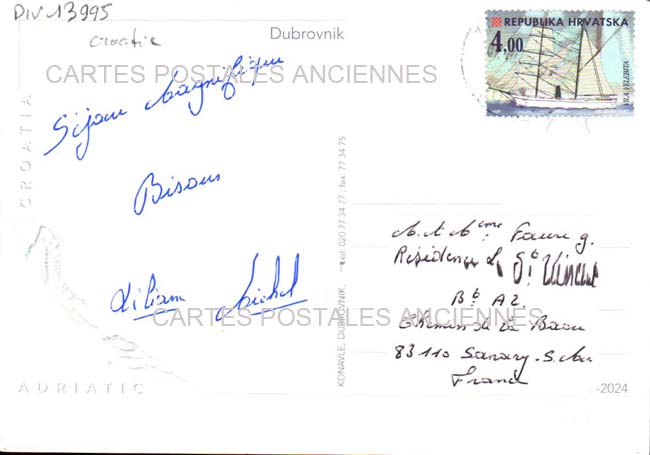 DIV 13995
Croatie
Dubrovnik
REPUBLIKA HRVATSKA
4,00
VILA VELEBITA
CARTES POSTALES ANCIENNES
CROATIA
Séjour Magnifique
Bisous
Liliane Michel
KONAVLE, DUBROVNIK, tel. 020 77 34 77; fax: 77 34 75
M. et Mme Faure g.
Résidence St Vincent
Bt A2
Chemin de la Baou
83110 Sanary-S-Mer
France
CARTES POSTALES ANCIENNES
ADRIATIC
-2024